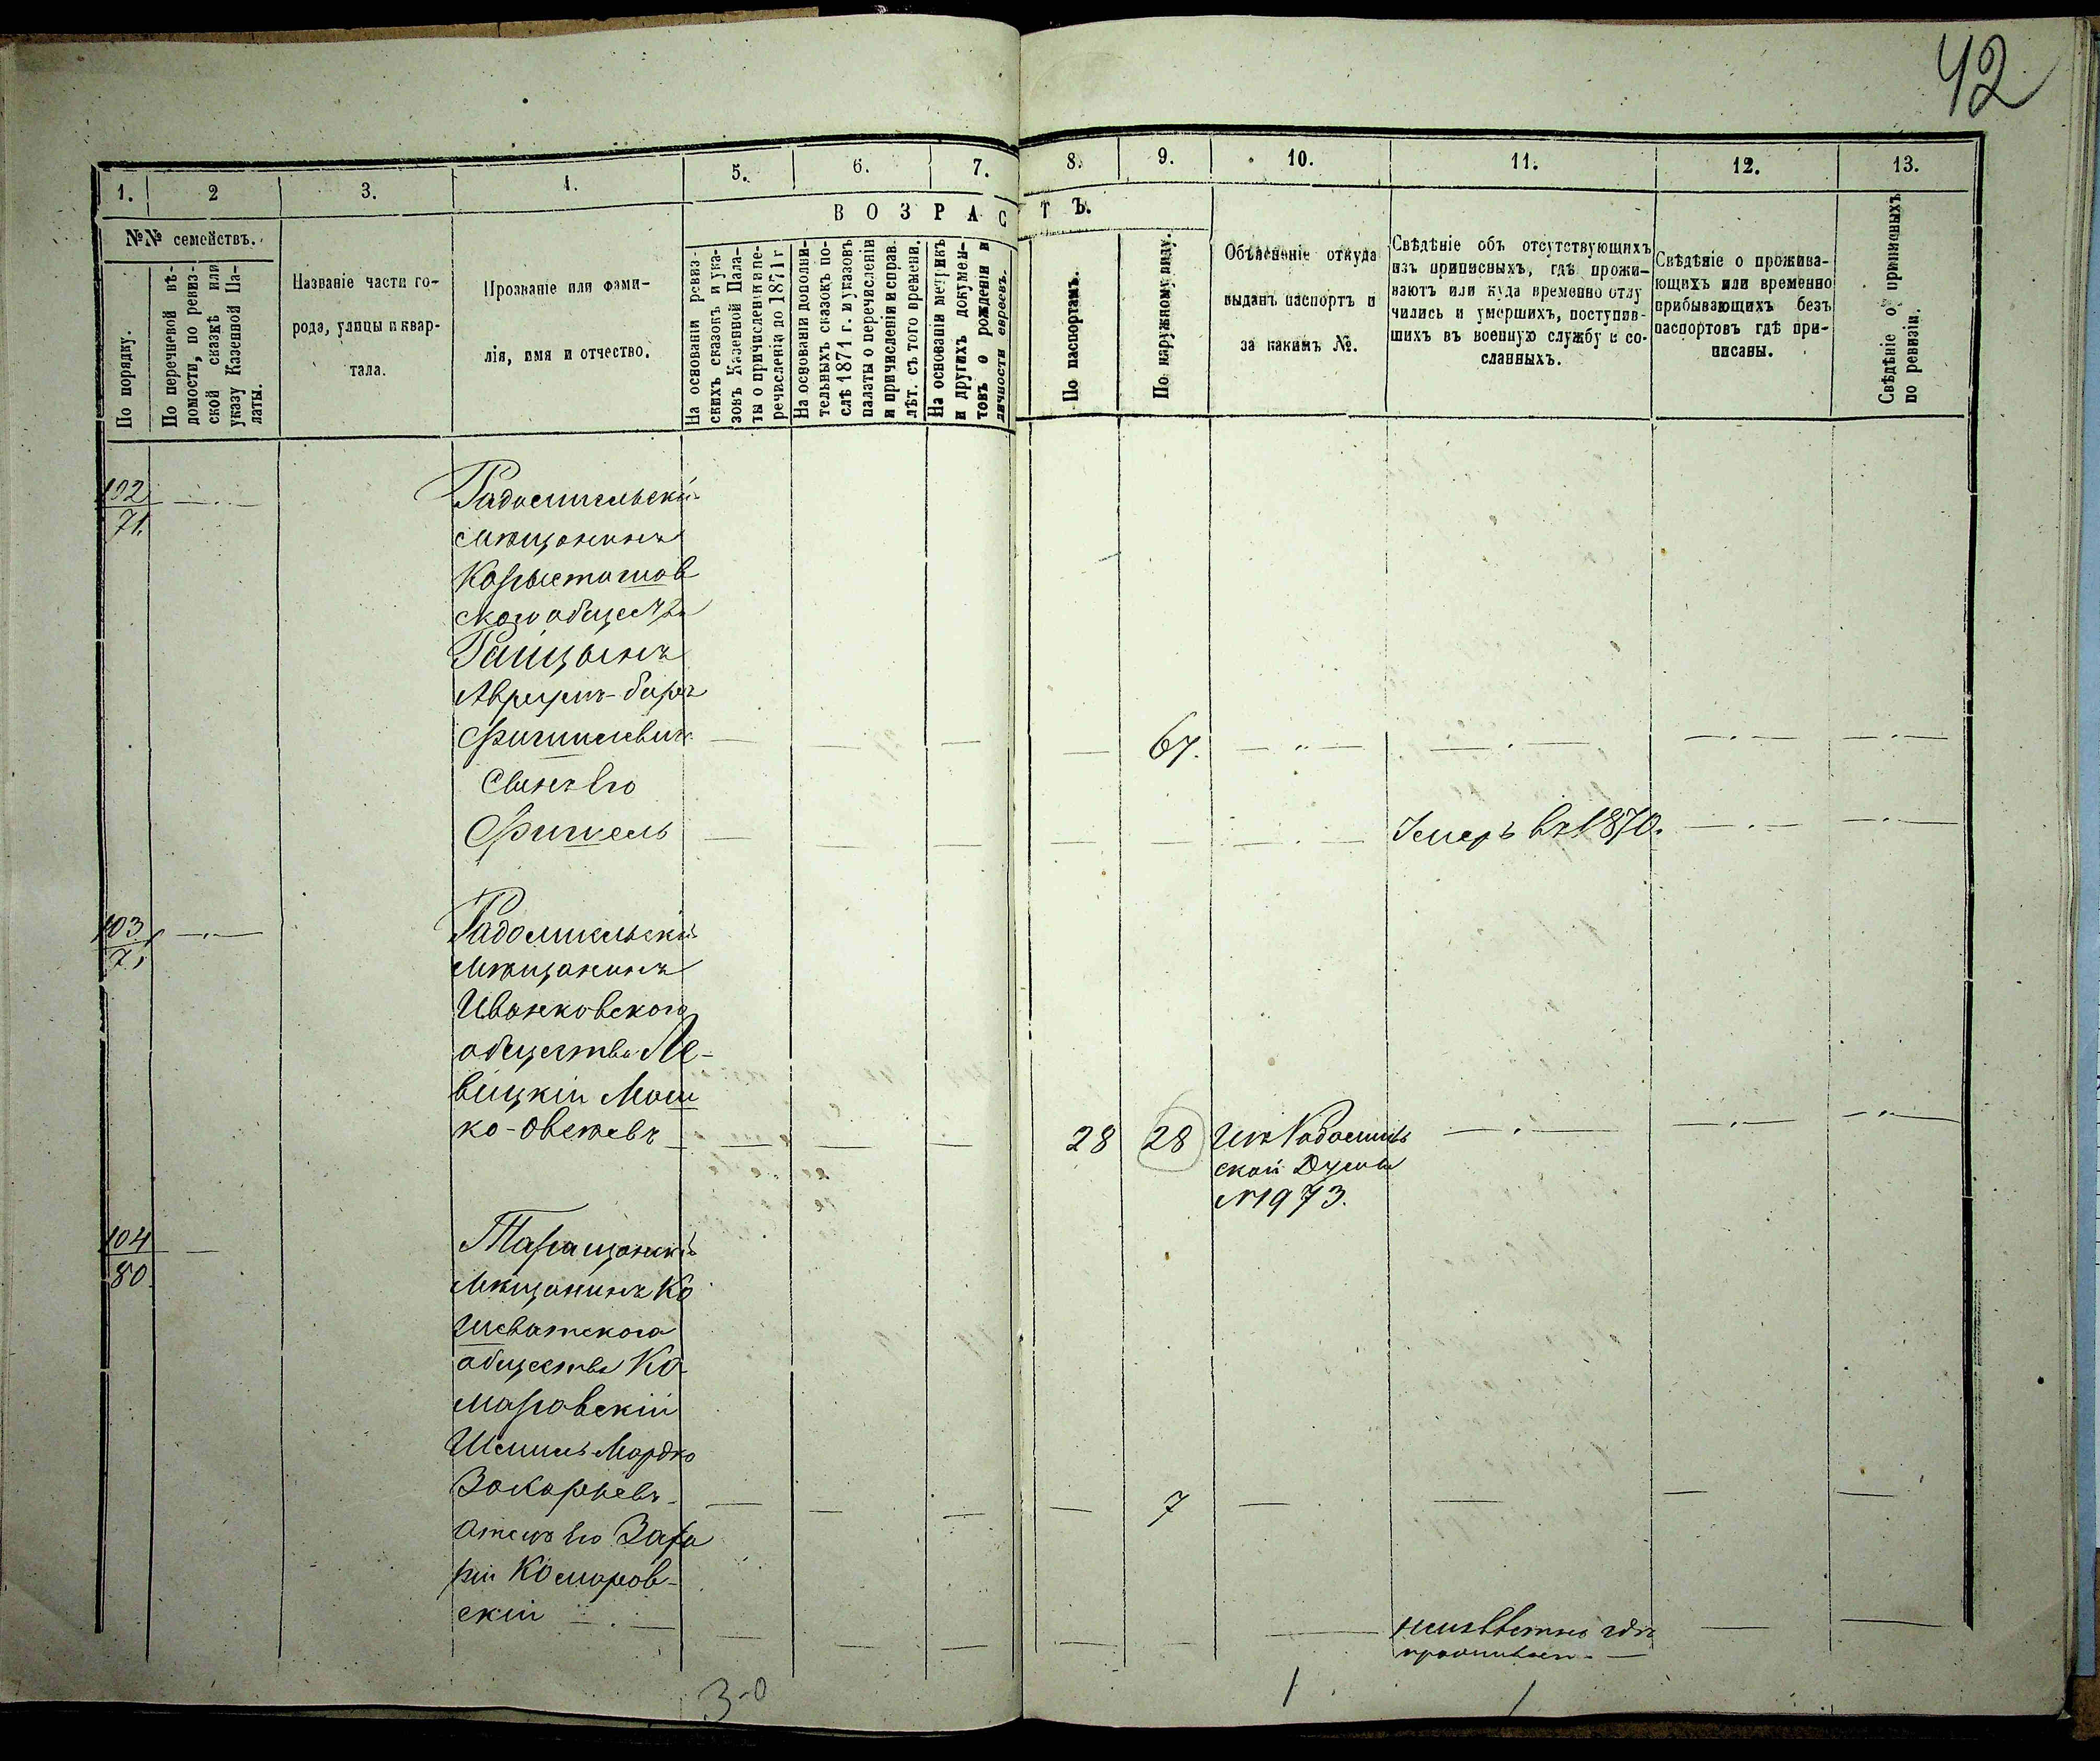 42
1.
2
3.
4.
5.
6.
7.
8.
9.
10.
11.
12.
13.
№№ семействъ.
ВОЗРАСТЪ.
По порядку.
По перечневой вѣ-
домости, по ревиз-
ской сказкѣ или
указу Казенной Па-
латы.
Названіе части го-
рода, улицы и квар-
тала.
Прозваніе или фами-
лія, имя и отчество.
На основаніи ревиз-
скихъ сказокъ и ука-
зовъ Казенной Пала-
ты о причисленіи и пе-
речисленіи по 1871 г
На основаніи дополни-
тельныхъ сказокъ по-
слѣ 1871 г. и указовъ
палаты о перечисленіи
и причисленіи и исправ.
лѣт. съ того времени.
На основаніи метрикъ
и другихъ докумен-
товъ о рожденіи и
личности евреевъ.
По паспортамъ.
По наружному виду.
Объясненіе откуда
выданъ паспортъ и
за какимъ №.
Свѣдѣніе объ отсутствующихъ
изъ приписныхъ, гдѣ прожи-
ваютъ или куда временно отлу
чились и умершихъ, поступив-
шихъ въ военную службу и со-
сланныхъ.
Свѣдѣніе о прожива-
ющихъ или временно
прибывающихъ безъ
паспортовъ гдѣ при-
писаны.
Свѣдѣніе о приписныхъ
по ревизіи.
102
71.
Радомисльскій
мѣщанинъ
Корыстышов
скаго общества
Сынъ его
Фишель
67.
Умеръ въ 1870.
103
71
Радомисльскій
мѣщанинъ
Иванковскаго
общества Ле-
вицкій Мош
ко-Овсѣевъ
28
28
Изъ Радомысль
ской Думы
№1973.
104
80
Таращанскій
мѣщанинъ Ко
шеватскаго
общества Ко
маровскій
Шмиль Мордко
Захарьевъ
7
Отецъ его Заха
рій Комаров-
скій
неизвѣстно гдѣ
проживаетъ
3-0
1
1